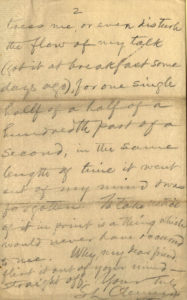 2
tress me or even disturb
the flow of my talk
(got it at breakfast some
days ago), for one single
half of a half of a
hundredth part of a
second, in the same
length of time it went
out of my mind & was
forgotten. To take
of it in print is a thing which
would never have occurred
to me. Why, my dear friend
flirt it out of your mind—
straight off. Yours truly
S L Clemens